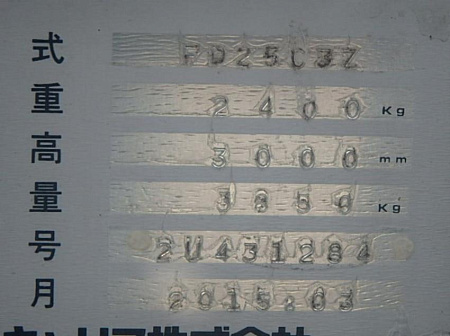 式 FD25C3Z
重 2400 Kg
高 3000 mm
量 3850 Kg
号 2U431284
月 2015.03
株式会社